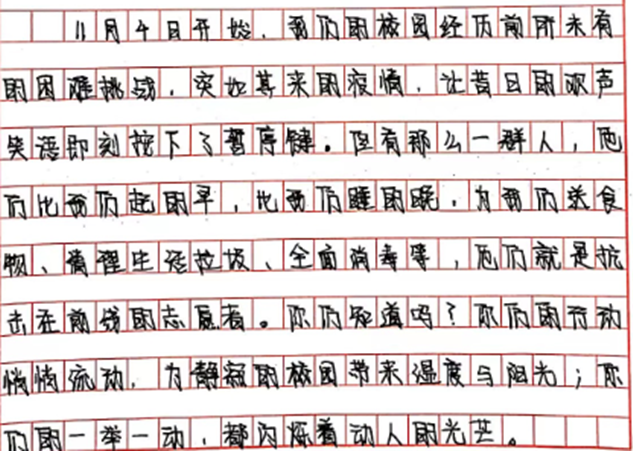 11月4日开始，我们的校园经历前所未有
的困难挑战，突如其来的疫情，让昔日的欢声
笑语即刻按下了暂停键。但有那么一群人，他
们比我们起的早，比我们睡的晚，为我们送食
物、清理生活垃圾、全面消毒等，他们就是抗
击在前线的志愿者。你们知道吗？你们的行动
悄悄流动，为静寂的校园带来温度与阳光；你
们的一举一动，都闪烁着动人的光芒。